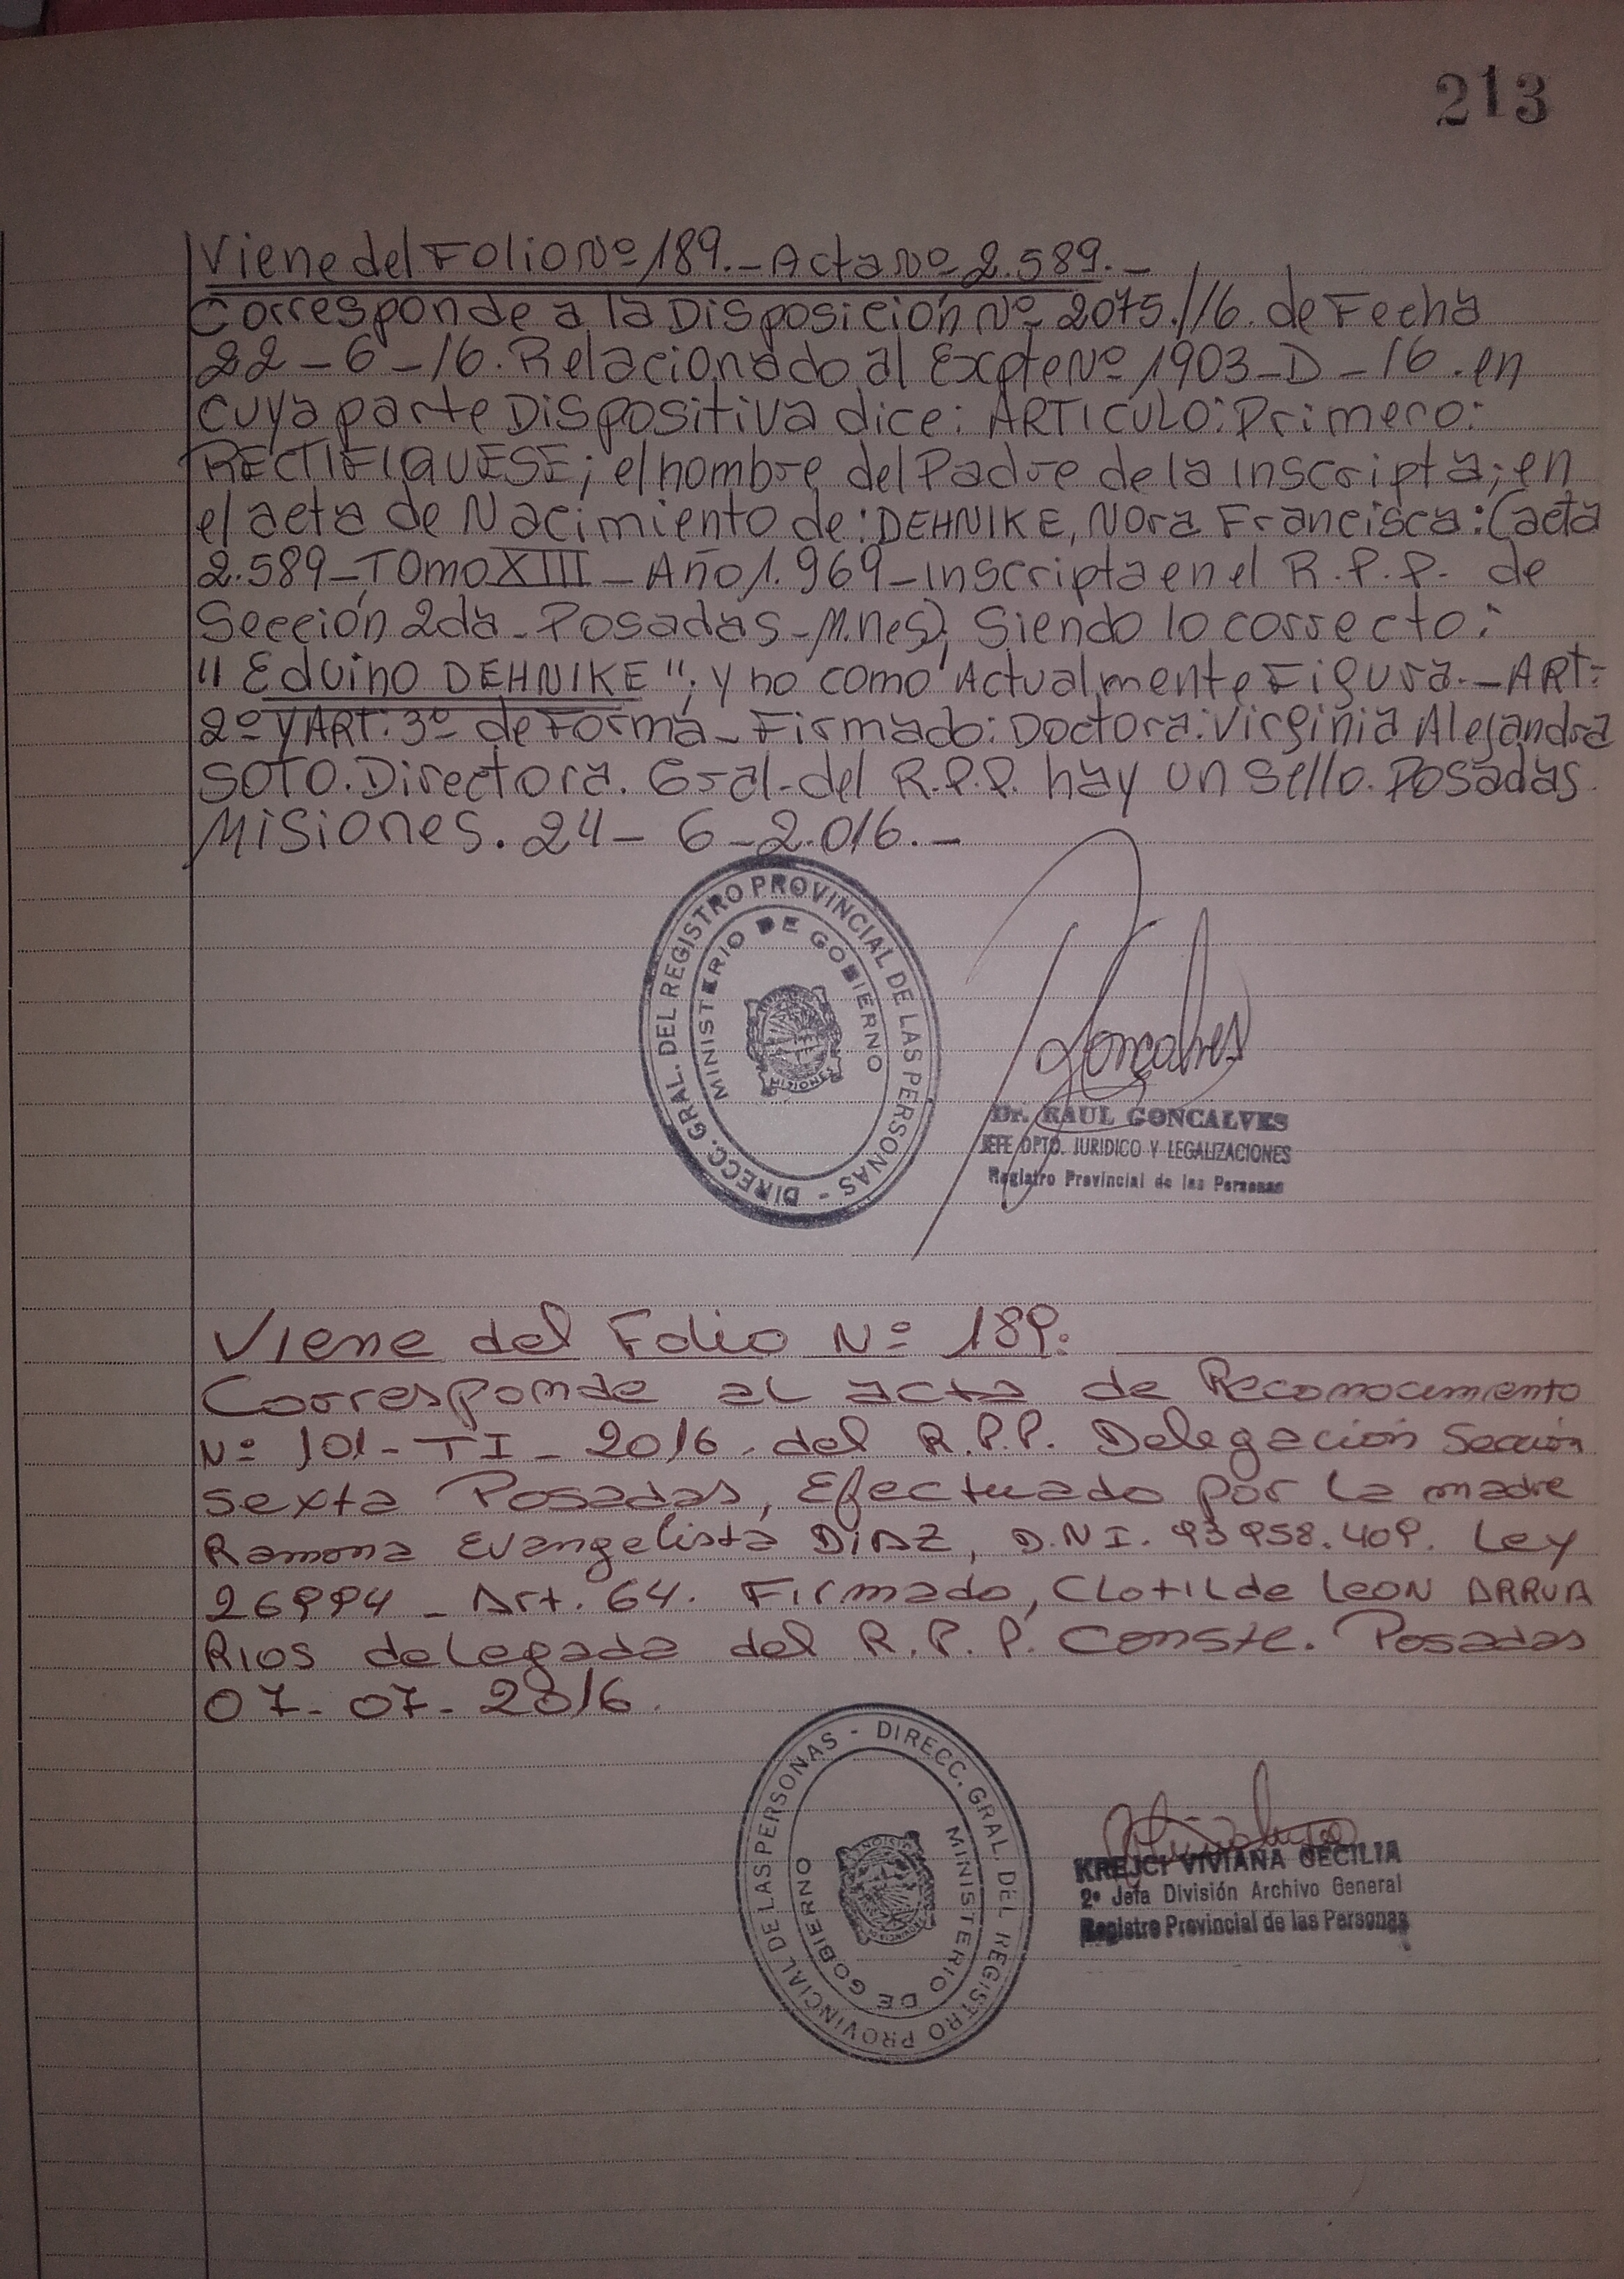 213
Viene del Folio Nº 189.- Acta Nº 2.589.-
Corresponde a la Disposición Nº 2075./16. de Fecha
22-6-16. Relacionado al Expte Nº 1903-D-16. en
cuya parte Dispositiva dice: ARTICULO: Primero:
RECTIFIQUESE; el nombre del Padre de la inscripta; en
el acta de Nacimiento de: DEHNIKE, Nora Francisca: (acta
2.589-Tomo XIII - Año 1.969-inscripta en el R.P.P. de
Sección 2da- Posadas-M.nes), Siendo lo correcto:
"Eduino DEHNIKE"; y no como Actualmente Figura.- ART:
2º y ART: 3º de Forma- Firmado: Doctora: Virginia Alejandra
SOTO. Directora. Gral. del R.P.P. hay un sello. Posadas.
Misiones. 24-6-2.016.-
DIRECC. GRAL. DEL REGISTRO PROVINCIAL DE LAS PERSONAS -
MINISTERIO DE GOBIERNO
MISIONES
Goncalves
Dr. RAUL GONCALVES
JEFE DPTO. JURIDICO Y LEGALIZACIONES
Registro Provincial de las Personas
Viene del Folio Nº 189:
Corresponde al acta de Reconocimiento
Nº 101-TI-2016. del R.P.P. Delegación Sección
sexta Posadas, Efectuado por la madre
Ramona Evangelista DIAZ, D.N.I. 93958.409. Ley
26994 - Art. 64. Firmado, Clotilde Leon ARRUA
RIOS delegada del R.P.P. Conste. Posadas
07-07-2016.
DIRECC. GRAL. DEL REGISTRO PROVINCIAL DE LAS PERSONAS -
MINISTERIO DE GOBIERNO
KREJCI VIVIANA CECILIA
2º Jefa División Archivo General
Registro Provincial de las Personas